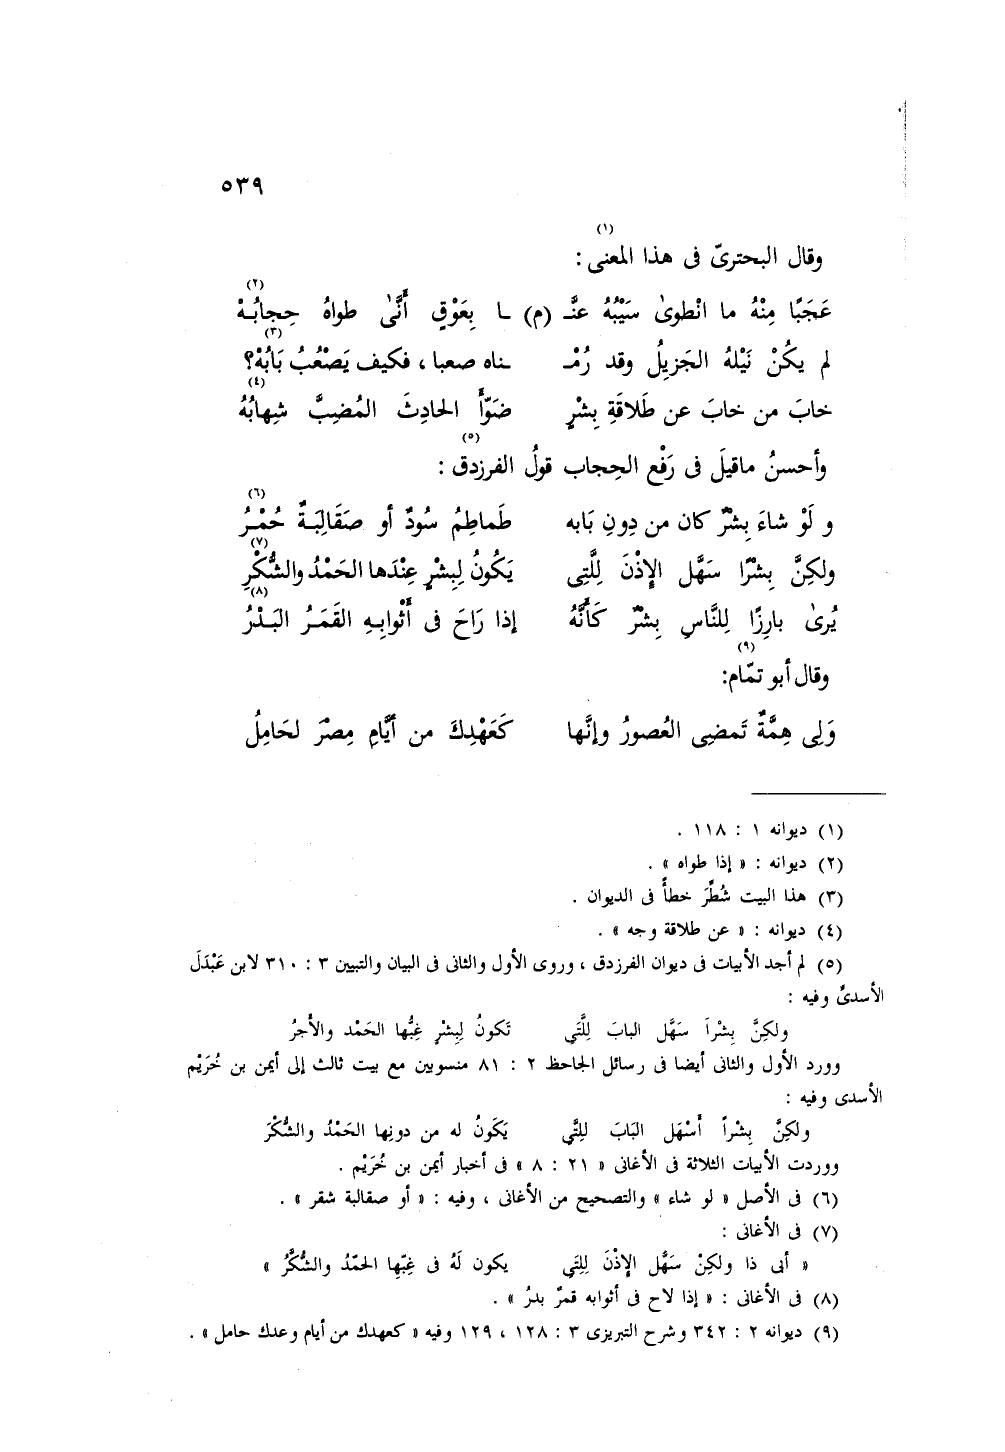 ٥٣٩
(١)
وقال البحترىّ فى هذا المعنى :
(٢)
عَجَبًا مِنْهُ ما انْطوىٰ سَيْبُهُ عنَّـ (م) ـا بِعَوْقٍ أَنَّىٰ طواهُ حِجابُـهْ
(٣)
لم يكُنْ نَيْلهُ الجَزيلُ وقد رُمْـ ـناه صعبا ، فكيف يَصْعُبُ بَابُهْ؟
(٤)
خابَ من خابَ عن طَلاقَةِ بِشْرٍ ضَوّأَ الحادِثَ المُضِبَّ شِهابُهُ
(٥)
وأحسنُ ماقيلَ فى رَفْع الحِجاب قولُ الفرزدق :
(٦)
و لَوْ شاءَ بِشْرٌ كان من دونِ بَابه طَماطِمُ سُودٌ أو صَقَالِبَـةٌ حُمْـرُ
(٧)
ولكِنَّ بِشْرًا سَهَّل الإِذْنَ لِلَّتِى يَكُونُ لِبِشْرٍ عِنْدَها الحَمْدُ والشُّكْرِ
(٨)
يُرىٰ بارِزًا لِلنَّاسِ بِشْرٌ كَأَنَّهُ إذا رَاحَ فى أَثْوابِـهِ القَمَـرُ البَـدْرُ
(٩)
وقال أبو تمّام:
وَلِى هِمَّةٌ تَمضِى العُصورُ وإنَّها كَعَهْدِكَ من أَيَّامِ مِصْرَ لحَامِلُ
(١) ديوانه ١ : ١١٨ .
(٢) ديوانه : « إذا طواه » .
(٣) هذا البيت شُطِّرَ خطأً فى الديوان .
(٤) ديوانه : « عن طلاقة وجه » .
(٥) لم أجد الأبيات فى ديوان الفرزدق ، وروى الأول والثانى فى البيان والتبيين ٣ : ٣١٠ لابن عَبْدَلَ
الأسدىّ وفيه :
ولكِنَّ بِشْراً سَهَّل البابَ لِلَّتَي تَكونُ لِبِشْرٍ غِبُّها الحَمْد والأجرُ
وورد الأول والثانى أيضا فى رسائل الجاحظ ٢ : ٨١ منسوبين مع بيت ثالث إلى أيمن بن خُرَيْم
الأسدى وفيه :
ولكِنَّ بِشْراً أَسْهَل البَابَ لِلتَّي يَكونُ له من دونِها الحَمْدُ والشُّكْرَ
ووردت الأبيات الثلاثة فى الأغانى « ٢١ : ٨ » فى أخبار أيمن بن خُرَيْم .
(٦) فى الأصل « لو شاء » والتصحيح من الأغانى ، وفيه : « أو صقالبة شقر » .
(٧) فى الأغانى :
« أبى ذا ولكِنْ سَهَّل الإِذْنَ لِلتِي يكون لَهُ فى غِبِّها الحَمّدُ والشُّكُرُ »
(٨) فى الأغانى : « إذا لاح فى أثوابه قمرٌ بدرُ » .
(٩) ديوانه ٢ : ٣٤٢ وشرح التبريزى ٣ : ١٢٨ ، ١٢٩ وفيه « كعهدك من أيام وعدك حامل » .